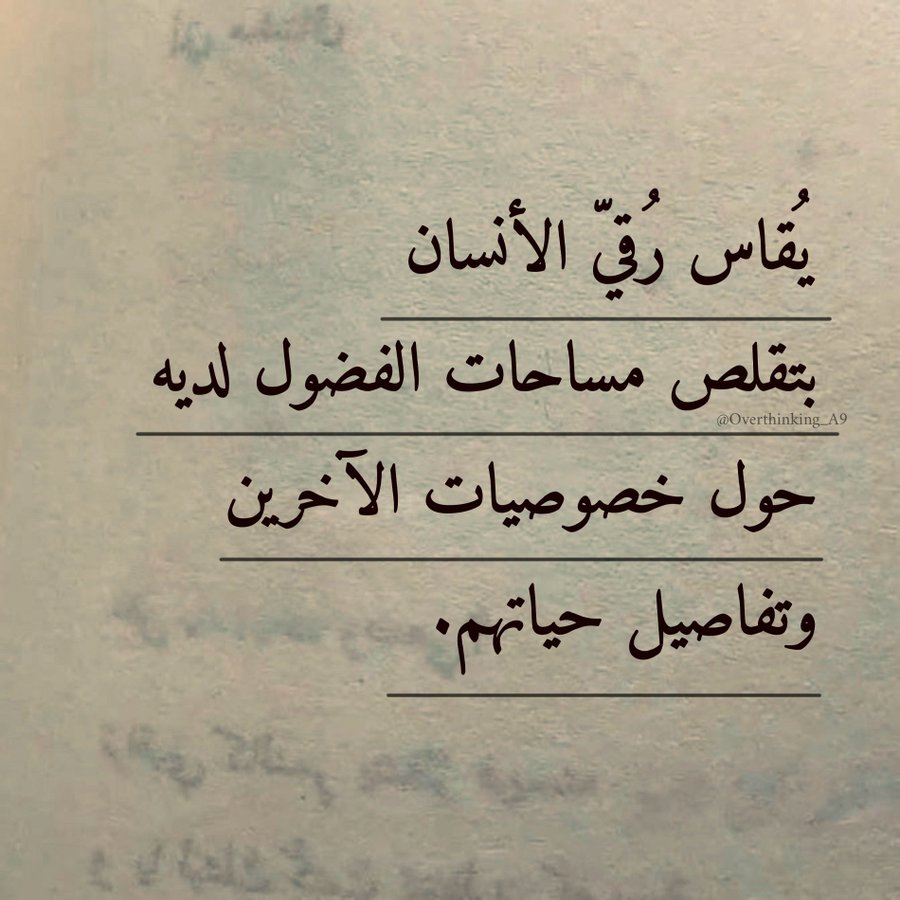 يُقاس رُقيّ الأنسان
بتقلص مساحات الفضول لديه
@Overthinking_A9
حول خصوصيات الآخرين
وتفاصيل حياتهم.